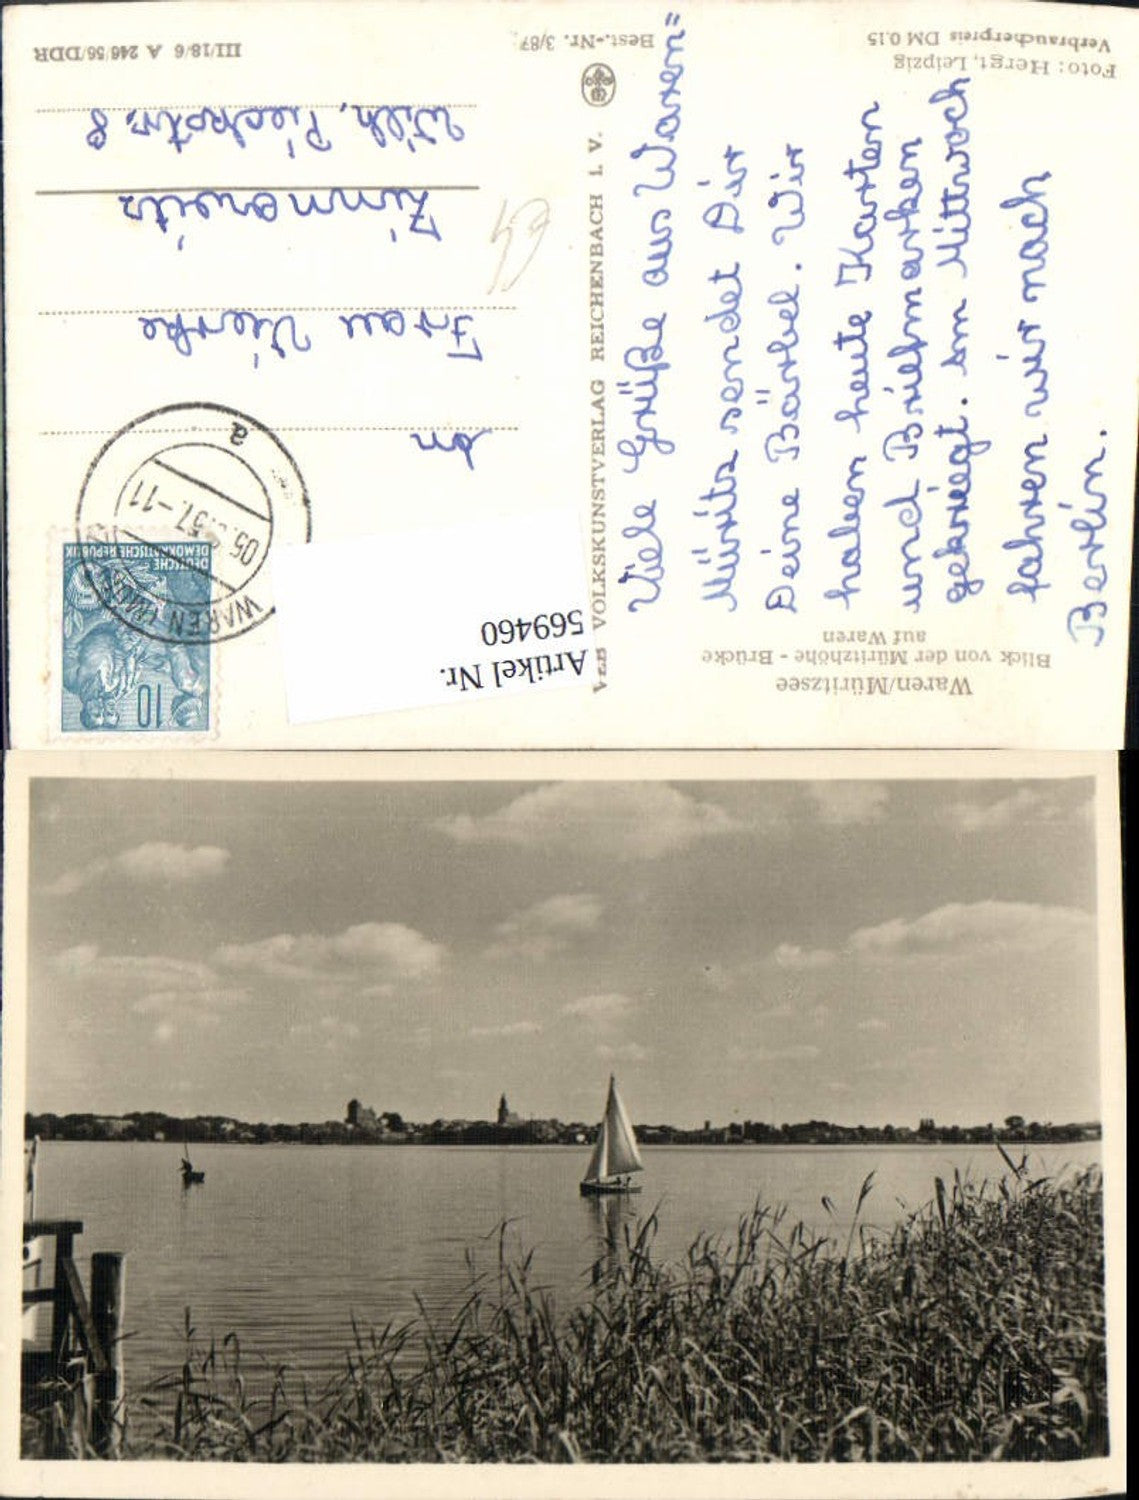 Waren/Müritzsee
Blick von der Müritzhöhe - Brücke
auf Waren
Viele Grüße aus Waren=
Müritz sendet Dir
Deine Bärbel. Wir
haben heute Karten
und Briefmarken
gekriegt. Am Mittwoch
fahren wir nach
Berlin.
Foto: Hergt, Leipzig
Verbraucherpreis DM 0.15
Best.-Nr. 3/87
VEB VOLKSKUNSTVERLAG REICHENBACH I. V.
Artikel Nr.
569460
10
DEUTSCHE
DEMOKRATISCHE REPUBLIK
WAREN
57.-11
a
An
Frau
Zinnowitz
Wilh. Pieckstr. 8
III/18/6 A 246/56/DDR